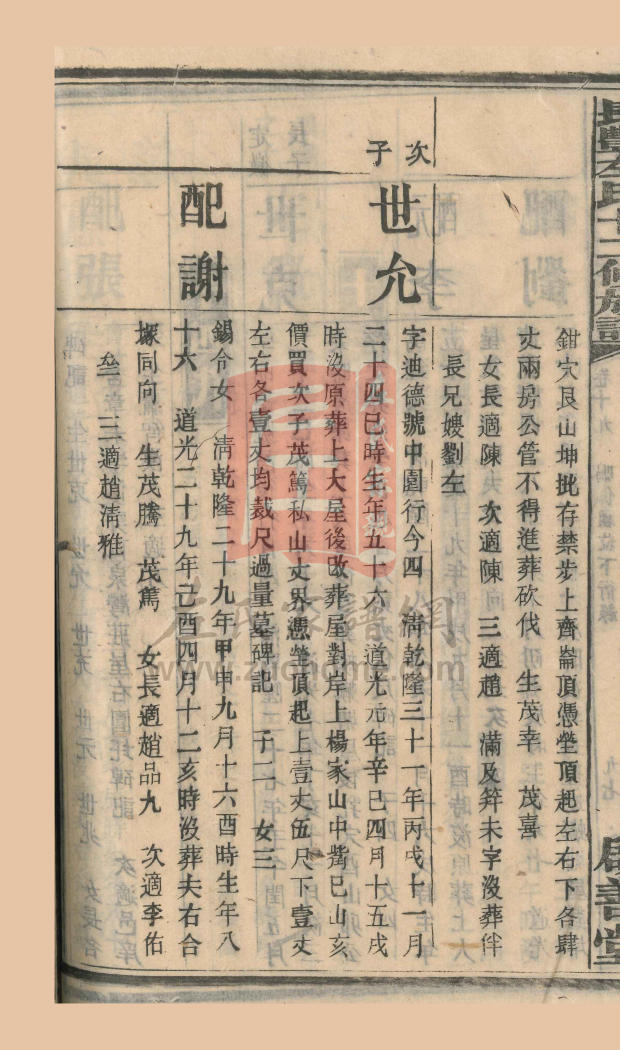 長豐左氏十二修族譜
卷十九
九七
啟善堂
鉗穴艮山坤批存禁步上齊崙頂憑塋頂起左右下各肆
丈兩房公管不得進葬砍伐　生茂幸　茂喜
女長適陳　次適陳　三適趙　滿及笄未字沒葬伴
長兄嫂劉左
次子
世允
字迪德號中園行今四　清乾隆三十一年丙戌十一月
二十四巳時生年五十六　道光元年辛巳四月十五戌
時沒原葬上大屋後改葬屋對岸上楊家山中嘴巳山亥
價買次子茂篤私山丈界憑塋頂起上壹丈伍尺下壹丈
左右各壹丈均裁尺過量墓碑記　子二　女三
配謝
錫令女　清乾隆二十九年甲申九月十六酉時生年八
十六　道光二十九年己酉四月十二亥時沒葬夫右合
塚同向　生茂騰　茂篤　女長適趙品九　次適李佑
垒　三適趙清雅
左氏家譜網
www.zuohome.com